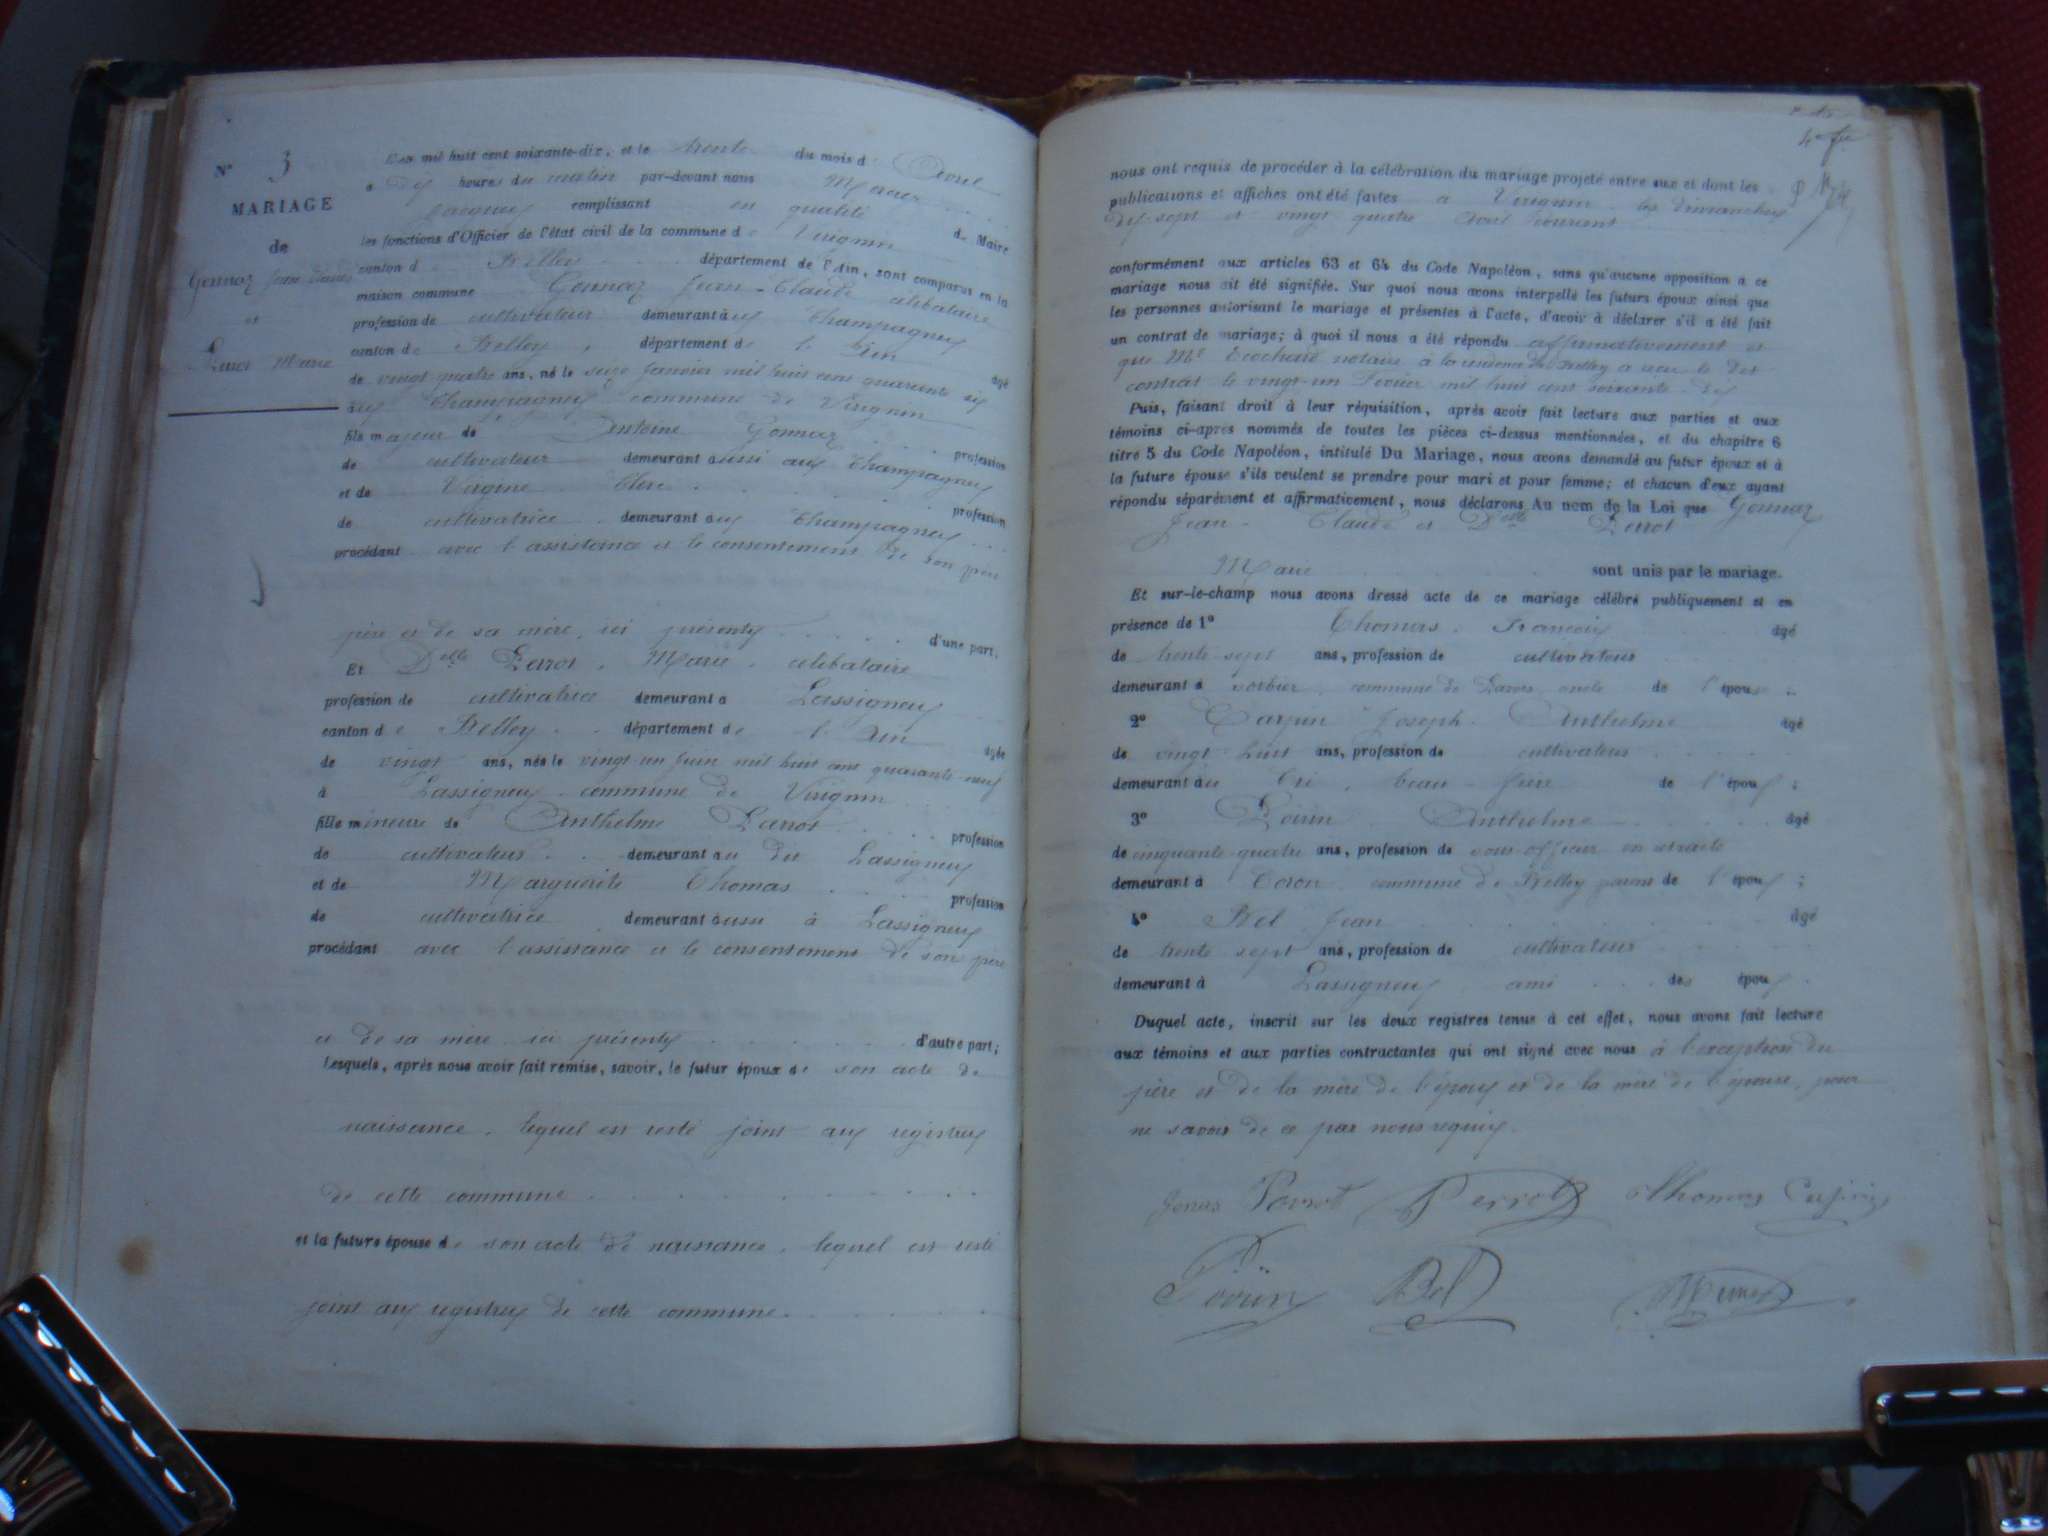 N° 3
MARIAGE
de
Gonnaz Jean Claude
et
Perrot Marie
L'an mil huit cent soixante-dix, et le trente du mois d'Avril
a dix heures du matin par-devant nous
remplissant en qualité de Maire
les fonctions d'Officier de l'état civil de la commune de Virignin
canton de Belley département de l'Ain, sont comparus en la
maison commune Gonnaz Jean-Claude célibataire
profession de cultivateur demeurant aux Champagneux
canton de Belley, département de l'Ain âgé
de vingt quatre ans, né le seize Janvier mil huit cent quarante six
aux Champagneux commune de Virignin
fils majeur de Antoine Gonnaz profession
de cultivateur demeurant aussi aux Champagneux
et de Virginie Clerc profession
de cultivatrice demeurant aux Champagneux
procédant avec l'assistance et le consentement de son père
père et de sa mère, ici présents d'une part.
Et Delle Perrot, Marie, célibataire
profession de cultivatrice demeurant a Lassigneux
canton de Belley département de l'Ain âgée
de vingt ans, née le vingt-un Juin mil huit cent quarante-neuf
à Lassigneux commune de Virignin
fille mineure de Anthelme Perrot profession
de cultivateur demeurant au dit Lassigneux
et de Marguerite Thomas profession
de cultivatrice demeurant aussi à Lassigneux
procédant avec l'assistance et le consentement de son père
et de sa mère ici présents d'autre part;
Lesquels, après nous avoir fait remise, savoir, le futur époux de son acte de
naissance, lequel est resté joint aux registres
de cette commune
et la future épouse de son acte de naissance, lequel est resté
joint aux registres de cette commune.
nous ont requis de procéder à la célébration du mariage projeté entre eux et dont les
publications et affiches ont été faites a Virignin les dimanches
dix-sept et vingt quatre Avril courant
conformément aux articles 63 et 64 du Code Napoléon, sans qu'aucune opposition a ce
mariage nous ait été signifiée. Sur quoi nous avons interpellé les futurs époux ainsi que
les personnes autorisant le mariage et présentes à l'acte, d'avoir à déclarer s'il a été fait
un contrat de mariage; à quoi il nous a été répondu affirmativement et
que Me Ecochard notaire à la résidence de Belley a reçu le dit
contrat le vingt-un Février mil huit cent soixante-dix
Puis, faisant droit à leur réquisition, après avoir fait lecture aux parties et aux
témoins ci-après nommés de toutes les pièces ci-dessus mentionnées, et du chapitre 6
titre 5 du Code Napoléon, intitulé Du Mariage, nous avons demandé au futur époux et à
la future épouse s'ils veulent se prendre pour mari et pour femme; et chacun d'eux ayant
répondu séparément et affirmativement, nous déclarons Au nom de la Loi que Gonnaz
Jean-Claude et Delle Perrot
Marie sont unis par le mariage.
Et sur-le-champ nous avons dressé acte de ce mariage célébré publiquement et en
présence de 1° Thomas François âgé
de trente-sept ans, profession de cultivateur
demeurant à commune de oncle de l'épouse
2° Carpin Joseph Anthelme âgé
de vingt-huit ans, profession de cultivateur
demeurant au beau-frère de l'époux;
3° Anthelme âgé
de cinquante-quatre ans, profession de sous-officier en retraite
demeurant à Coron commune de Belley parent de l'époux;
4° Bel Jean âgé
de trente sept ans, profession de cultivateur
demeurant à Lassigneux ami des époux
Duquel acte, inscrit sur les deux registres tenus à cet effet, nous avons fait lecture
aux témoins et aux parties contractantes qui ont signé avec nous à l'exception du
père et de la mère de l'époux et de la mère de l'épouse, pour
ne savoir de ce par nous requis.
Perrot Perrot Thomas
Bel